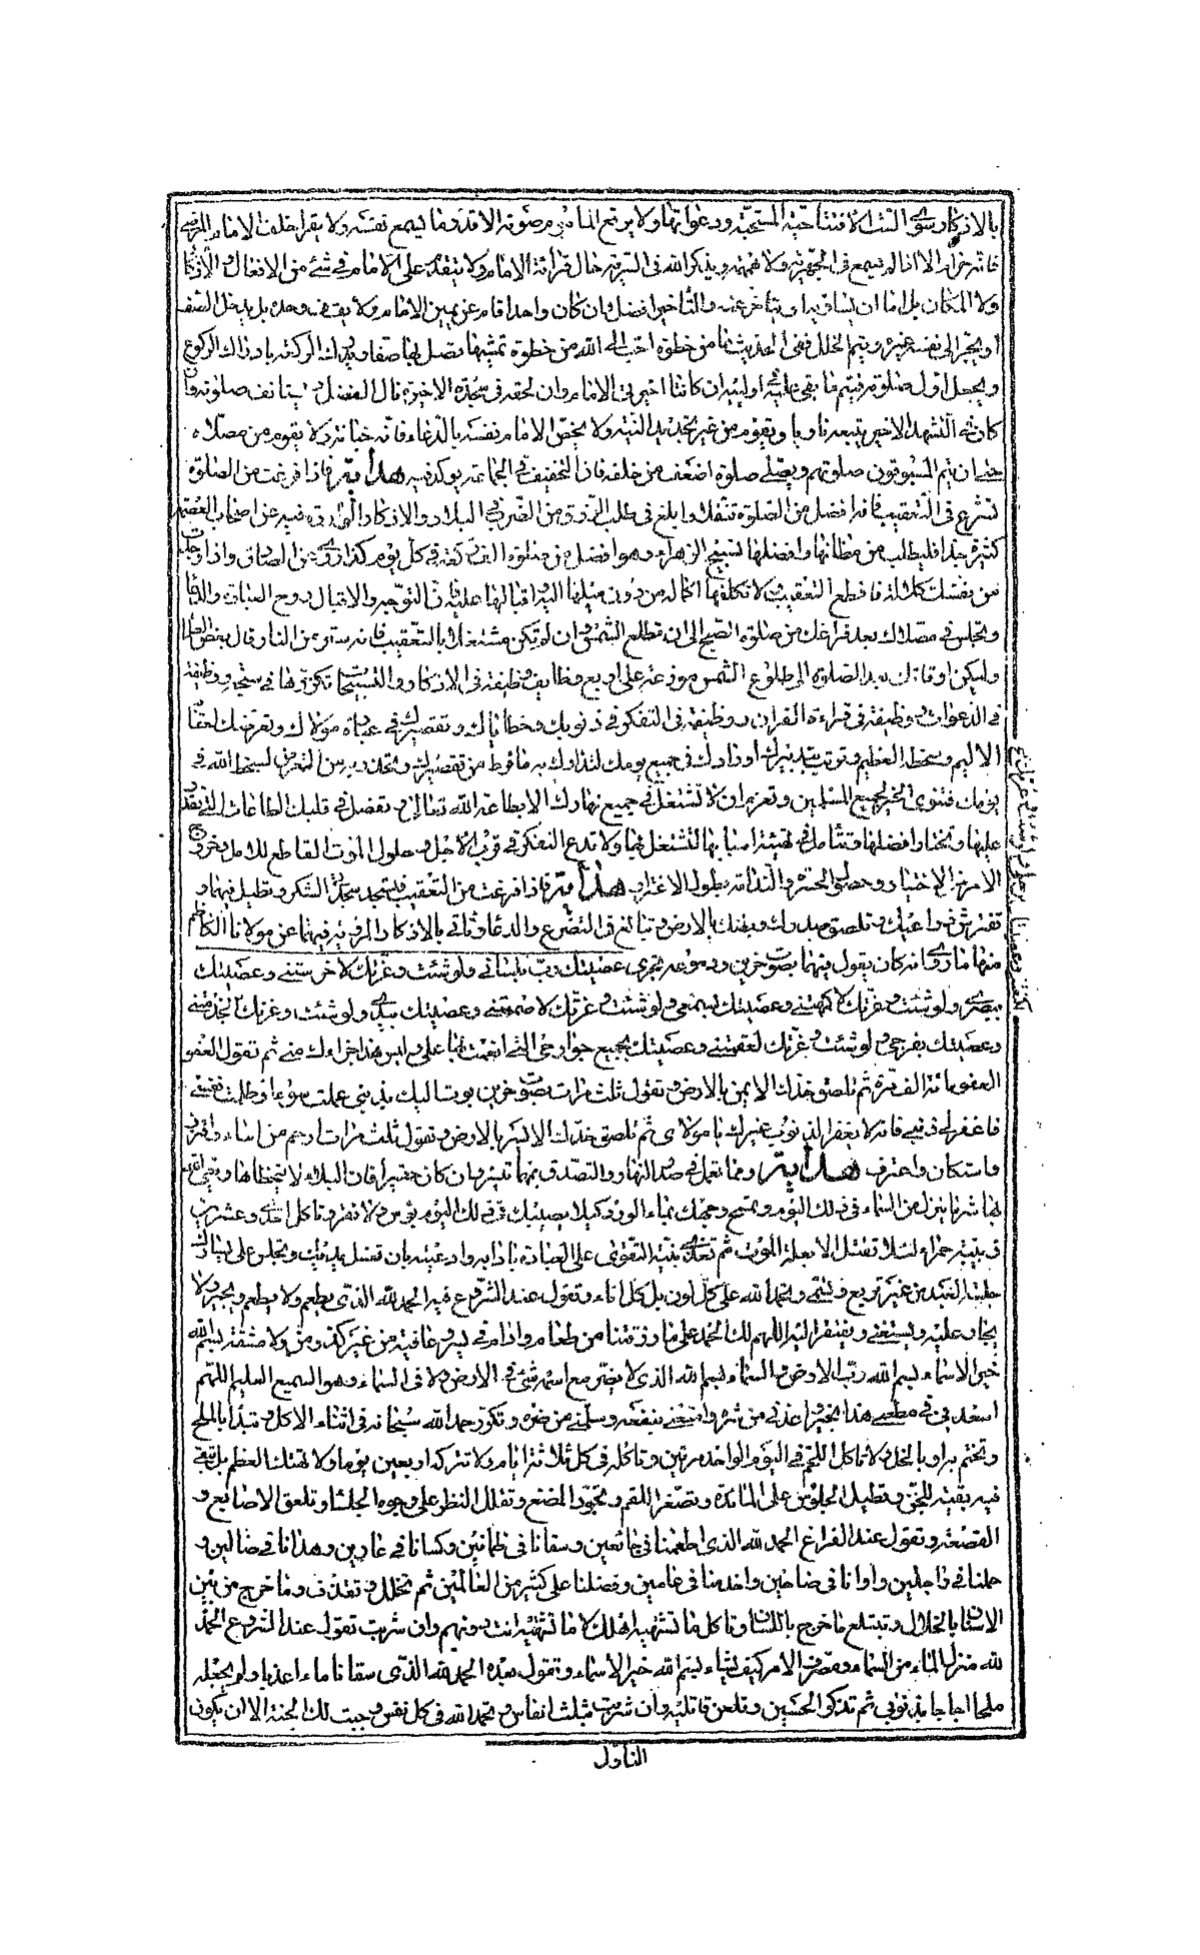 بالاذكار سوى الست الافتتاحية المستحبة ودعواتها ولا يرفع المأموم صوته الا قدر ما يسمع نفسه ولا يقرأ خلف الامام المرضي
فانه حرام الا اذا لم يسمع في الجهرية ولا همهمة ويذكر الله في السرية حال قرائة الامام ولا يتقدم على الامام في شئ من الافعال والاذكار
ولا المكان بل اما ان يساويه او يتأخر عنه والتأخير افضل وان كان واحدا قام عن يمين الامام ولا يقف وحده بل يدخل الصف
او يجر الى نفسه غيره ويتم الخلل ففي الحديث ما من خطوة احب الى الله من خطوة تمشيها تصل بها صفا ويدرك الركعة بادراك الركوع
ويجعل اول صلوته فيتم ما بقي عليه اوليين كانتا اخيرتي الامام وان لحقه في سجدته الاخيرة قال المفضل يستأنف صلوته وان
كان في التشهد الاخير يتبعه ناويا ويقوم من غير تجديد النية ولا يخص الامام نفسه بالدعاء فانه خيانة ولا يقوم من مصلاه
حتى ان يتم المسبوقون صلوتهم ويصلي صلوة اضعف من خلفه فان التخفيف في الجماعة يؤكد فيه هداية فاذا فرغت من الصلوة
تشرع في التعقيب فانه افضل من الصلوة تنفلا وابلغ في طلب الرزق من الضرب في البلاد والاذكار المروية فيه عن اصحاب العصمة
كثيرة جدا فليطلب من مظانها وافضلها تسبيح الزهراء وهو افضل من صلوة الف ركعة في كل يوم كذا روي عن الصادق واذا وجدت
من نفسك كلالة فاقطع التعقيب ولا تكلفها اكماله من دون ميلها اليه واقبالها عليه فان التوجه والاقبال روح العبادة والدعاء
وتجلس في مصلاك بعد فراغك من صلوة الصبح الى ان تطلع الشمس وان لم تكن مشتغلا بالتعقيب فانه ستر من النار وقال بعض العلماء
وليكن اوقاتك بعد الصلوة الى طلوع الشمس موزعة على اربع وظايف وظيفة في الاذكار والتسبيحات تكررها في سبحة ووظيفة
في الدعوات ووظيفة في قراءة القران ووظيفة في التفكر في ذنوبك وخطاياك وتقصيرك في عبادة مولاك وتعرضك لعقابه
الاليم وسخطه العظيم وترتب بتدبيرك اورادك في جميع يومك لتدارك به ما فرط من تقصيرك وتحترز به من التعرض لسخط الله في
يومك فتنوي الخير لجميع المسلمين وتعزم ان لا تشتغل في جميع نهارك الا بطاعة الله تعالى وتفصل في قلبك الطاعات التي تقدر
عليها وتختار افضلها وتتأمل في تهيئة اسبابها لتشتغل بها ولا تدع التفكر في قرب الاجل وحلول الموت القاطع للامل وخروج
الامر من الاختيار وحصول الحسرة والندامة بطول الاغترار هداية فاذا فرغت من التعقيب فتسجد سجدتي الشكر وتطيل فيهما و
تفترش ذراعيك وتلصق صدرك وبطنك بالارض وتبالغ في التضرع والدعاء وتأتي بالاذكار المروية فيهما عن مولانا الكاظم
منها ما روي انه كان يقول فيهما بصوت حزين ودموعه تجري عصيتك رب بلساني ولو شئت وعزتك لاخرستني وعصيتك
ببصري ولو شئت وعزتك لاكمهتني وعصيتك بسمعي ولو شئت وعزتك لاصممتني وعصيتك بيدي ولو شئت وعزتك لجذمتني
وعصيتك بفرجي ولو شئت وعزتك لعقمتني وعصيتك بجميع جوارحي التي انعمت بها علي وليس هذا جزاءك مني ثم تقول العفو
العفو مائة الف مرة ثم تلصق خدك الايمن بالارض وتقول ثلث مرات بصوت حزين بؤت اليك بذنبي عملت سوءا وظلمت نفسي
فاغفر لي ذنبي فانه لا يغفر الذنوب غيرك يا مولاي ثم تلصق خدك الايسر بالارض وتقول ثلث مرات ارحم من اساء واقترف
واستكان واعترف هداية ومما تعمل في صدر النهار التصدق بمهما تيسر وان كان حقيرا فان البلاء لا يتخطاها وتقي اقى
بها شر ما ينزل من السماء في ذلك اليوم وتمسح وجهك بماء الورد كيلا يصيبك في ذلك اليوم بؤس ولا فقر وتاكل احدى وعشرين
زبيبة حمراء لئلا تعتل الا بعلة الموت ثم تغدى بنية التقوى على العبادة بادابه وادعيته بان تغسل يديك وتجلس على يسارك
جلسة العبد من غير تربع وتسمي وتحمد الله على كل لون بل كل اناء وتقول عند الشروع فيه الحمد لله الذي يطعم ولا يطعم ويجير ولا
يجار عليه ويستغني ويفتقر اليه اللهم لك الحمد على ما رزقتنا من طعام وادام في يسر وعافية من غير كد مني ولا مشقة بسم الله
خير الاسماء بسم الله رب الارض والسماء بسم الله الذي لا يضر مع اسمه شئ في الارض ولا في السماء وهو السميع العليم اللهم
اسعدني في مطعمي هذا بخيره واعذني من شره وامتعني بنفعه وسلمني من ضره وتكرر حمد الله سبحانه في اثناء الاكل وتبدأ بالملح
وتختم به او بالخل ولا تاكل اللحم في اليوم الواحد مرتين وتاكله في كل ثلاثة ايام ولا تتركه اربعين يوما ولا تهتك العظم بل تبقي
فيه بقية للجن وتطيل الجلوس على المائدة وتصغر اللقم وتجود المضغ وتقلل النظر على وجوه الجلساء وتلعق الاصابع و
القصعة وتقول عند الفراغ الحمد لله الذي اطعمنا في جائعين وسقانا في ظمائين وكسانا في عارين وهدانا في ضالين و
حملنا في راجلين واوانا في ضاحين واخدمنا في عامين وفضلنا على كثير من العالمين ثم تخلل وتقذف ما خرج من بين
الاسنان بالخلال وتبتلع ما خرج باللسان وتاكل ما تشتهيه اهلك لا ما تشتهيه انت دونهم وان شربت تقول عند الشروع الحمد
لله منزل الماء من السماء ومصرف الامر كيف يشاء بسم الله خير الاسماء وتقول بعده الحمد لله الذي سقانا ماء عذبا ولم يجعله
ملحا اجاجا بذنوبي ثم تذكر الحسين وتلعن قاتليه وان شربت بثلث انفاس وتحمد الله في كل نفس وجبت لك الجنة الا ان يكون
المناول